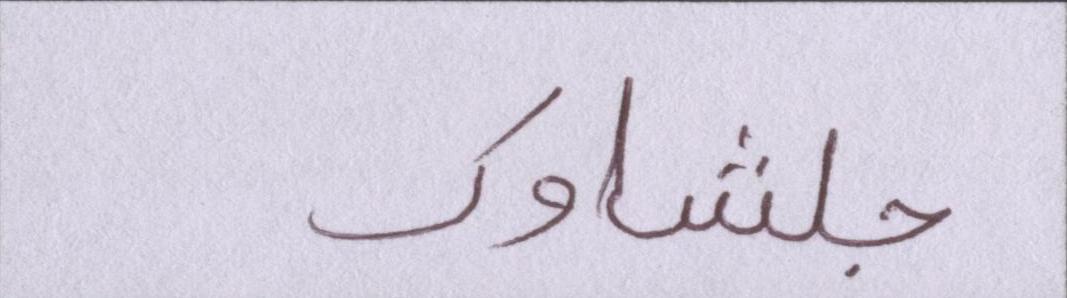 جلشاوک